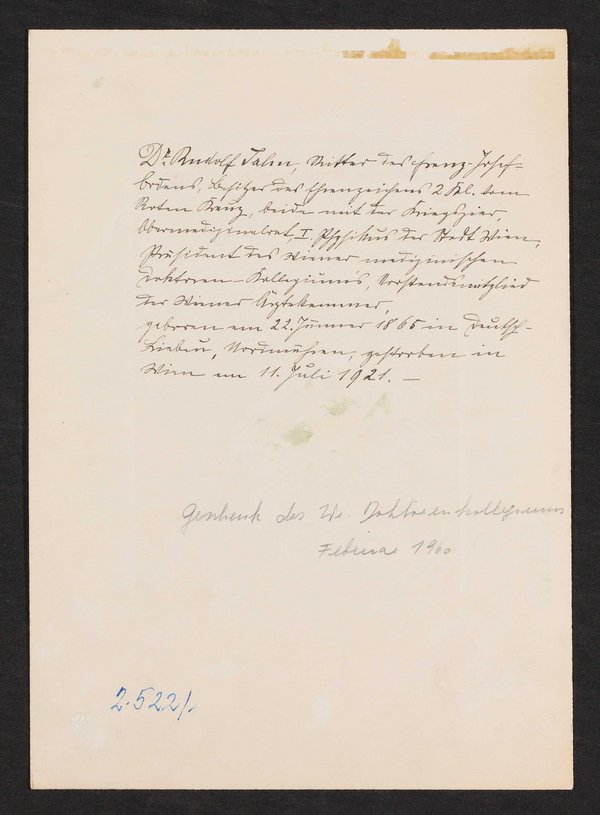 Dr. Rudolf Jahn, Ritter des Franz-Josef-
Ordens, Besitzer des Ehrenzeichens 2 Kl. vom
Roten Kreuz, beide mit der Kriegszier,
Obermedizinalrat, I. Physikus der Stadt Wien,
Präsident des wiener medizinischen
Doktoren-Kollegiums, Vorstandsmitglied
der Wiener Ärztekammer,
geboren am 22. Jänner 1865 in Deutsch-
Liebau, Nordmähren, gestorben in
Wien am 11. Juli 1921. —
Geschenk des W. Doktorenkollegiums
Februar 1960
2.522/.